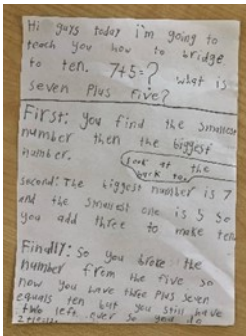 Hi guys today i'm going to
teach you how to bridge
to ten. 7+5=? what is
seven Plus five?
First: you find the smallest
number then the biggest
number.
Look at the
back to.
second: The biggest number is 7
and the smallest one is 5 So
you add three to make ten
Finally: So you broke the
number from the five so
now you have three Plus seven
equals ten but you still have
two left over so you do